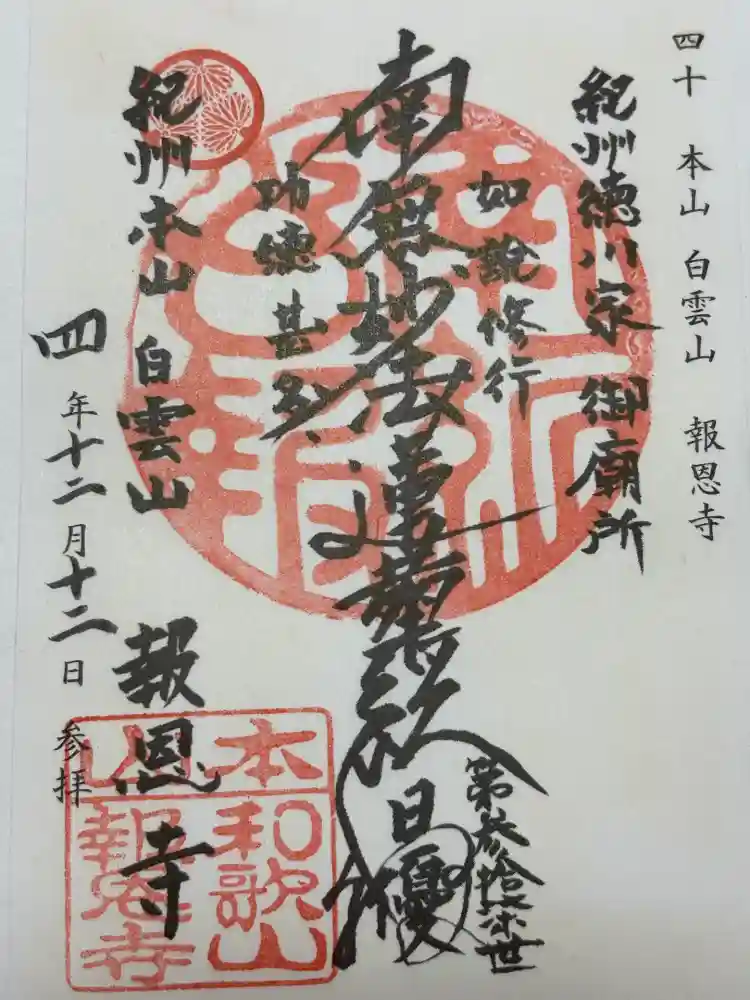 四十 本山 白雲山 報恩寺
紀州徳川家 御廟所
如説修行
南無妙法蓮華経
日優
功徳甚多
紀州本山 白雲山 報恩寺
四年十二月十二日 参拝
本山
和歌山
報恩寺